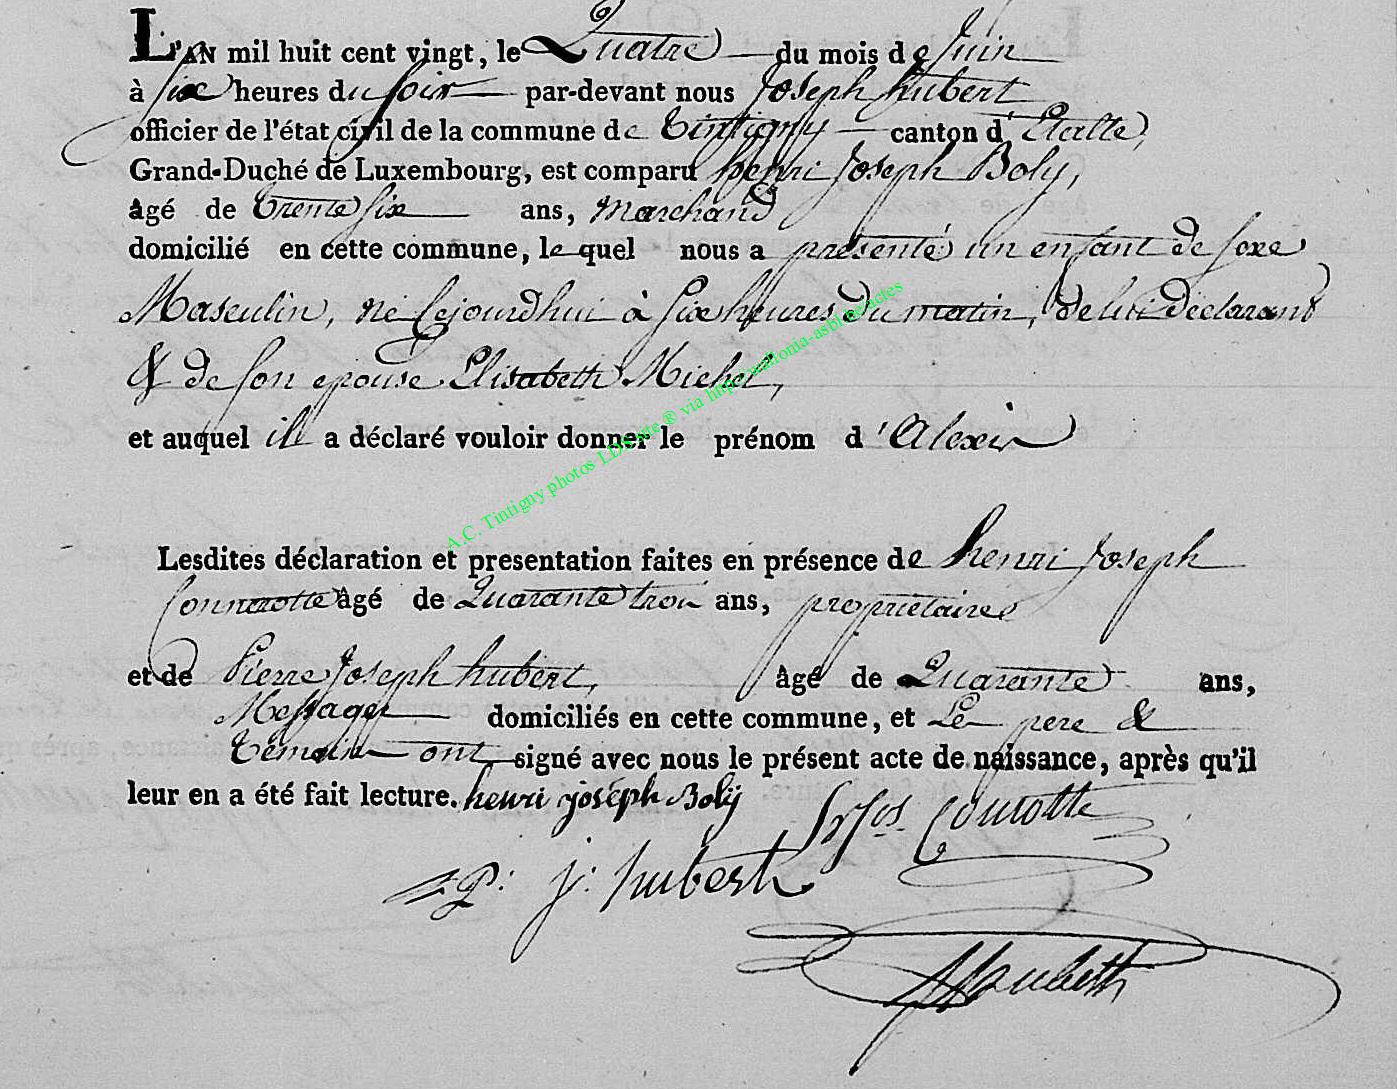 L'AN mil huit cent vingt, le Quatre du mois de Juin
à six heures du soir par-devant nous Joseph hubert
officier de l'état civil de la commune de Tintigny canton d'Etalle,
Grand-Duché de Luxembourg, est comparu henri Joseph Boly,
âgé de trente six ans, Marchand
domicilié en cette commune, lequel nous a présenté un enfant de sexe
Masculin, né cejourdhui à six heures du matin, de lui déclarant
& de son epouse Elisabeth Michel,
et auquel il a déclaré vouloir donner le prénom d'Alexis
A.C. Tintigny photos LDS site ® via http:wallonia-asbl.be/actes
Lesdites déclaration et presentation faites en présence de henri Joseph
Connerotte âgé de Quarante trois ans, proprietaires
et de Pierre Joseph hubert, âgé de Quarante ans,
Messager domiciliés en cette commune, et Le pere &
temoins ont signé avec nous le présent acte de naissance, après qu'il
leur en a été fait lecture. henri joseph Bolÿ
P: j: hubert